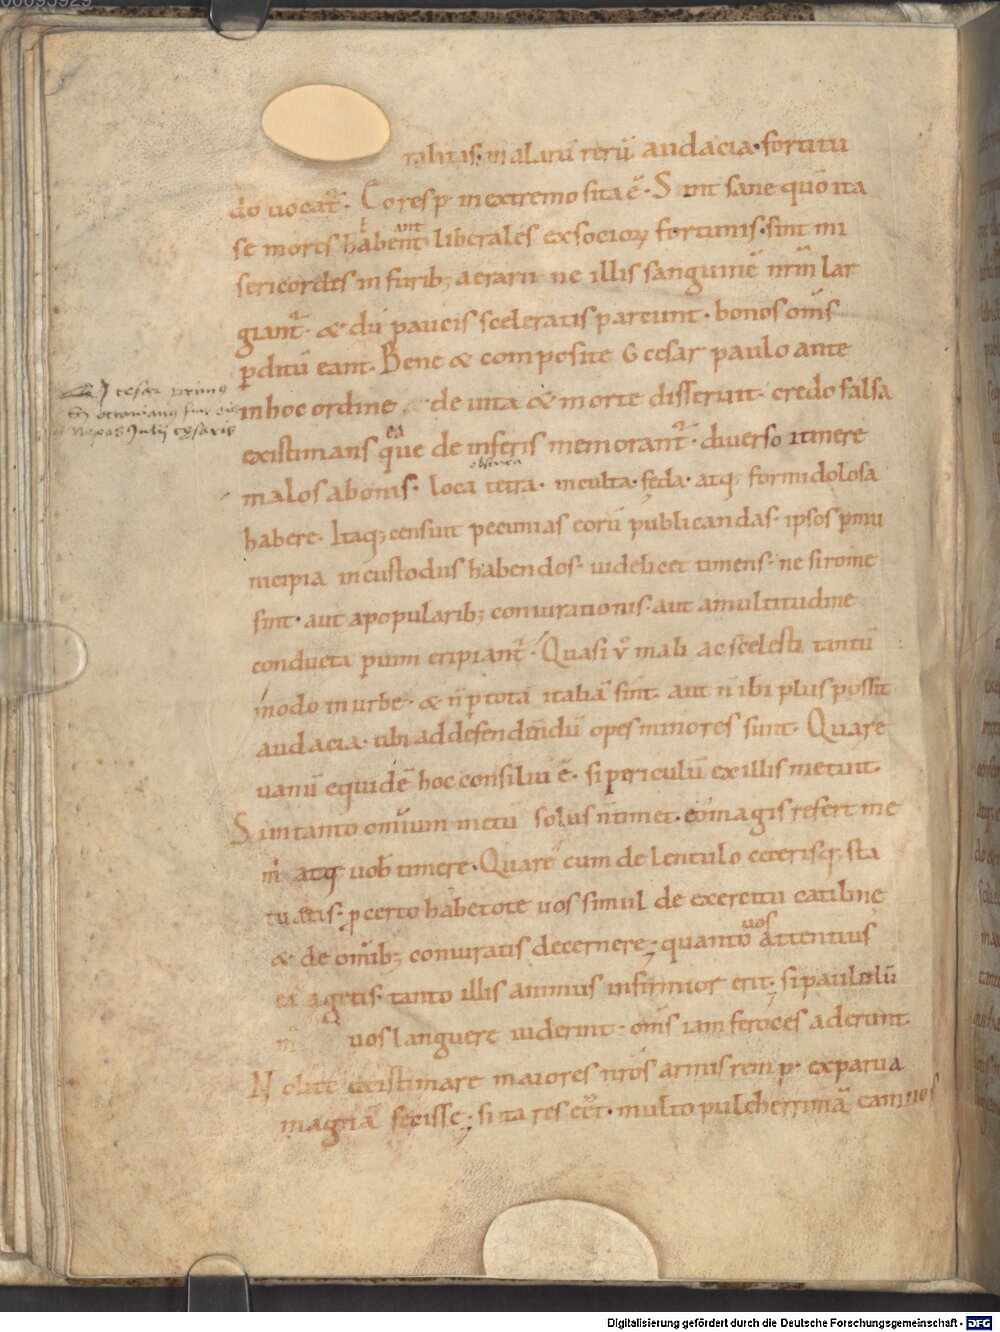 00095929
ralitas. malarū rerū audacia. fortitu
do uocat̄. Eo resp in extremo sita ē. Sint sane quō ita
se mores habent liberales ex socioꝝ fortunis. sint mi
sericordes in furib; aerarii ne illis sanguinē nr̄m lar
giant̄. & dū paucis sceleratis parcunt. bonos om̄s
ꝑditū eant. Bene & composite G cesar paulo ante
in hoc ordine de uita & morte disseruit. credo falsa
existimans que ea de inferis memorant̄. diuerso itinere
malos a bonis. loca tetra. obscura inculta. feda. atq; formidolosa
habere. Itaq; censuit pecunias eorū publicandas. ipsos ꝑ mu
nicipia in custodiis habendos. uidelicet timens. ne si rome
sint. aut a popularib; coniurationis. aut a multitudine
conducta ꝑ uim eripiant̄. Quasi ů mali ac scelesti tantū
modo in urbe. & n̄ ꝑ totā italiā sint. aut n̄ ibi plus possit
audacia. ubi ad defendendū opes minores sunt. Quare
uanū equidē hoc consiliū ē. si periculū ex illis metuit.
Si in tanto omnium metu solus n̄ timet. eo magis refert me
m̄ atq uob timere. Quare cum de lentulo ceterisq; sta
tuetis. ꝓ certo habetote uos simul de exercitu catilinę
& de om̄ib; coniuratis decernere; quanto uos attentius
ea agetis. tanto illis animus infirmior erit; si paululū
m̄ uos languere uiderint. om̄s iam feroces aderunt.
Nolite existimare maiores nr̄os armis rem p. ex parua
magnā fecisse; si ita res eēt. multo pulcherrimā eam nos
Digitalisierung gefördert durch die Deutsche Forschungsgemeinschaft - DFG